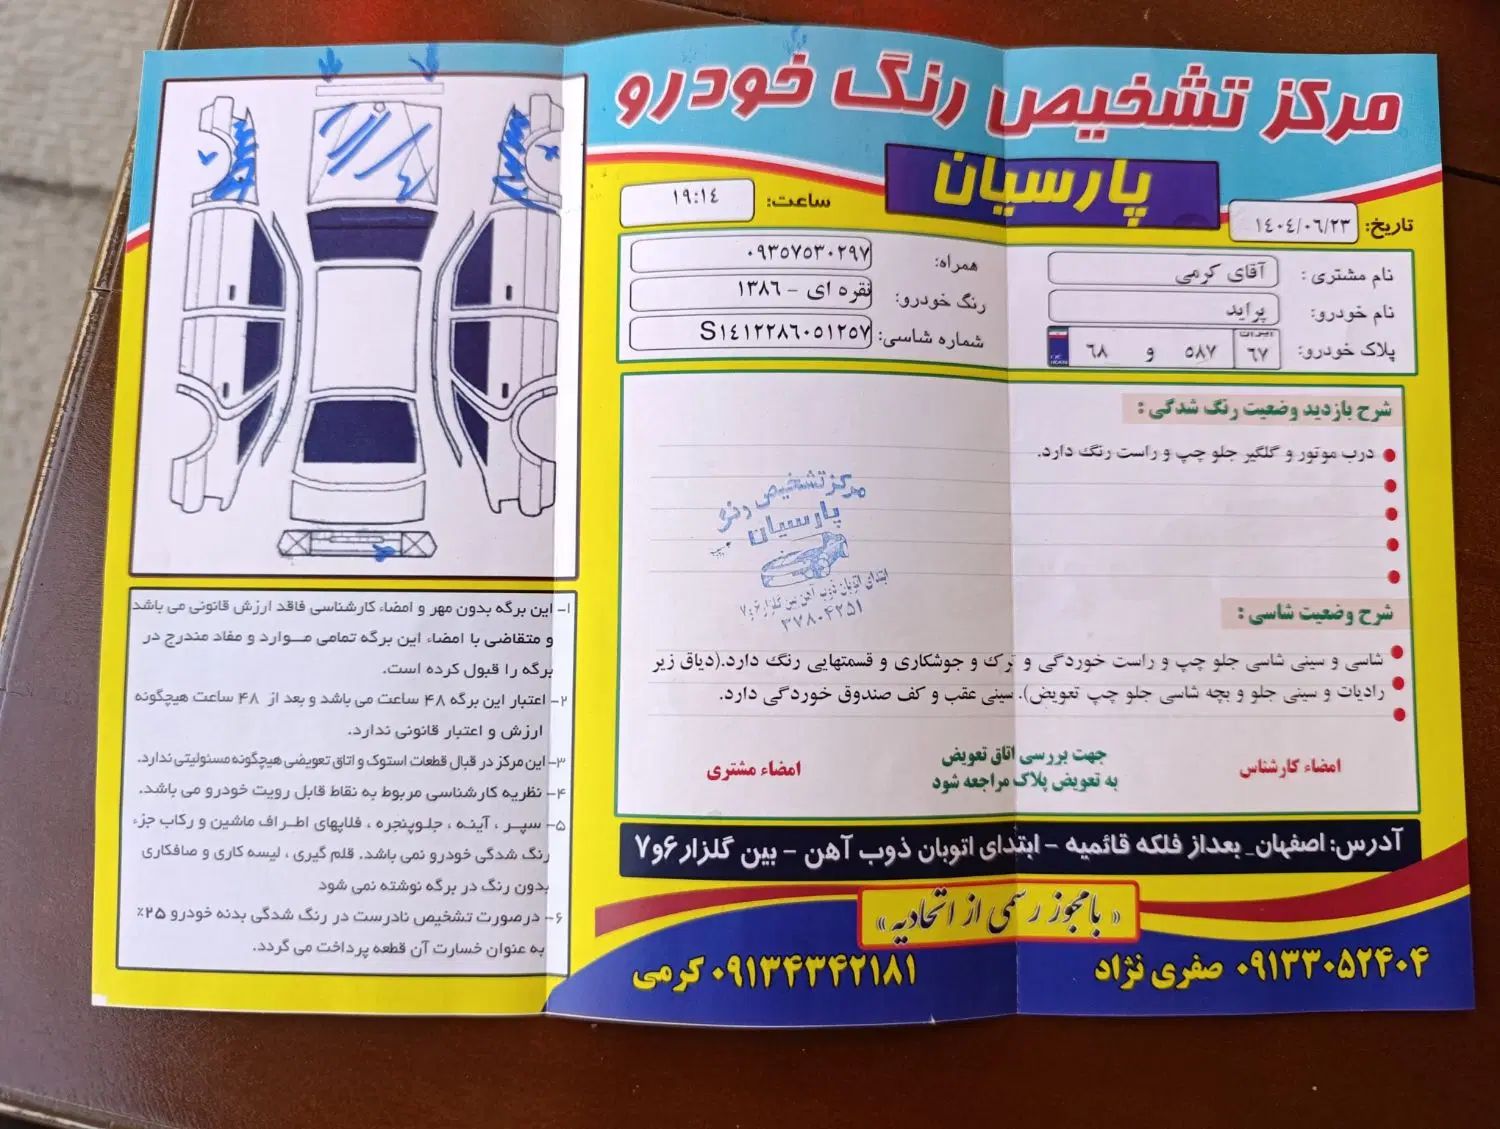 مرکز تشخیص رنگ خودرو
پارسیان
تاریخ: ۱۴۰۴/۰۶/۲۳
ساعت: ۱۹:۱٤
نام مشتری : آقای کرمی
نام خودرو: پراید
پلاک خودرو: ایران ۶۷ ۵۸۷ و ۶۸
همراه: ۰۹۳۵۷۵۳۰۲۹۷
رنگ خودرو: نقره ای - ۱۳۸۶
شماره شاسی: S۱٤۱۲۲۸۶۰۵۱۲۵۷
شرح بازدید وضعیت رنگ شدگی :
درب موتور و گلگیر جلو چپ و راست رنگ دارد.
مرکز تشخیص رنگ
پارسیان
ابتدای اتوبان ذوب آهن بین گلزار ۶ و ۷
۳۷۸۰۴۲۵۱
شرح وضعیت شاسی :
شاسی و سینی شاسی جلو چپ و راست خوردگی و ترک و جوشکاری و قسمتهایی رنگ دارد.(دیاق زیر
رادیات و سینی جلو و بچه شاسی جلو چپ تعویض). سینی عقب و کف صندوق خوردگی دارد.
امضاء کارشناس
جهت بررسی اتاق تعویض
به تعویض پلاک مراجعه شود
امضاء مشتری
آدرس: اصفهان_ بعداز فلکه قائمیه - ابتدای اتوبان ذوب آهن - بین گلزار ۶و۷
« بامجوز رسمی از اتحادیه »
۰۹۱۳۳۰۵۲۴۰۴ صفری نژاد
۰۹۱۳۴۳۴۲۱۸۱ کرمی
۱- این برگه بدون مهر و امضاء کارشناسی فاقد ارزش قانونی می باشد
و متقاضی با امضاء این برگه تمامی موارد و مفاد مندرج در
برگه را قبول کرده است.
۲- اعتبار این برگه ۴۸ ساعت می باشد و بعد از ۴۸ ساعت هیچگونه
ارزش و اعتبار قانونی ندارد.
۳- این مرکز در قبال قطعات استوک و اتاق تعویضی هیچگونه مسئولیتی ندارد.
۴- نظریه کارشناسی مربوط به نقاط قابل رویت خودرو می باشد.
۵- سپر ، آینه ، جلوپنجره ، فلاپهای اطراف ماشین و رکاب جزء
رنگ شدگی خودرو نمی باشد. قلم گیری ، لیسه کاری و صافکاری
بدون رنگ در برگه نوشته نمی شود
۶- درصورت تشخیص نادرست در رنگ شدگی بدنه خودرو ۲۵٪
به عنوان خسارت آن قطعه پرداخت می گردد.